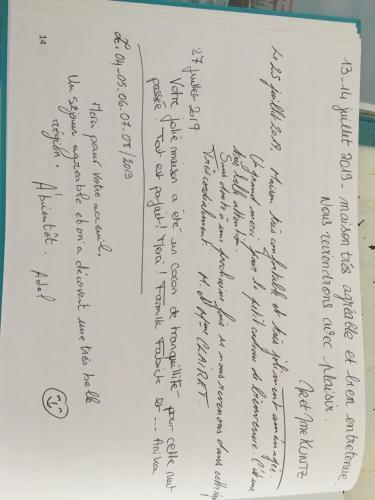 13-14 juillet 2019 - maison très agréable et bien entretenue.
Nous reviendrons avec plaisir.
Mr et Mme KUNTZ
Le 25 juillet 2019. Maison très confortable et très joliment aménagée.
Un grand merci pour le petit cadeau de bienvenue. C'est une
très belle attention.
Sans doute à une prochaine fois si nous revenons dans cette région
Très cordialement M. et Mme CLAIRET
27 juillet 2019
Votre jolie maison a été un cocon de tranquillité pour cette nuit
passée. Tout est parfait! Merci! Famille Fabrice et ... Anika
L. 04-05.06.07.08/2019
Merci pour votre accueil.
Un séjour agréable et on a découvert une très belle
région. A bientôt. Adel
14